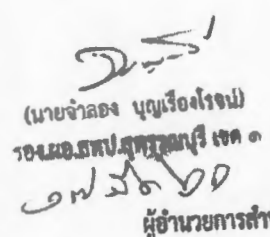 (นายจำลอง บุญเรืองโรจน์)
รอง.ผอ.สพป.สุพรรณบุรี เขต ๑
๑๗ มีค ๖๐
ผู้อำนวยการสำ